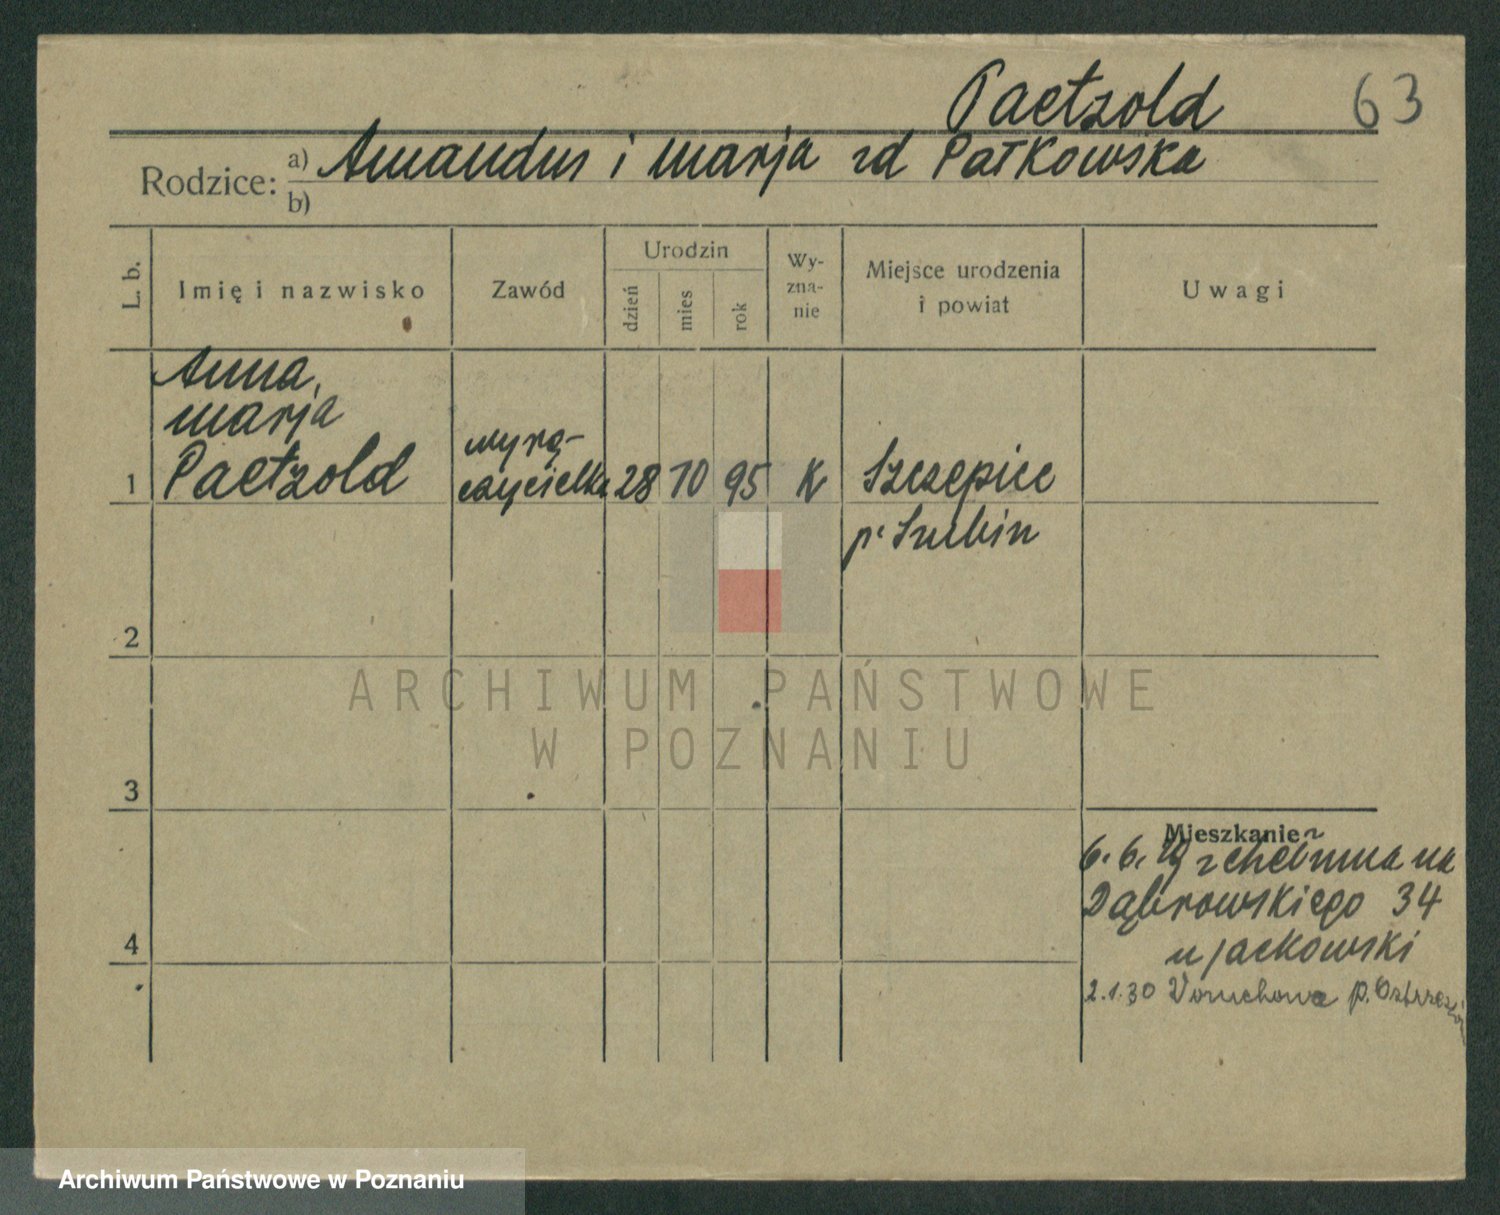 Paetzold 63
Rodzice: a) Amandus i Marja zd Patkowska
b)
L. b. Imię i nazwisko Zawód Urodzin dzień mies rok Wy-zna-nie Miejsce urodzenia i powiat Uwagi
Anna,
Marja
Paetzold
1
wyrę-
czycielka
28 10 95 K Szczepice
p. Szubin
2
3
4
Mieszkanie
6. 6. z Chełmna na
Dąbrowskiego 34
u Jackowski
2.1.30 p.
ARCHIWUM PAŃSTWOWE
W POZNANIU
Archiwum Państwowe w Poznaniu